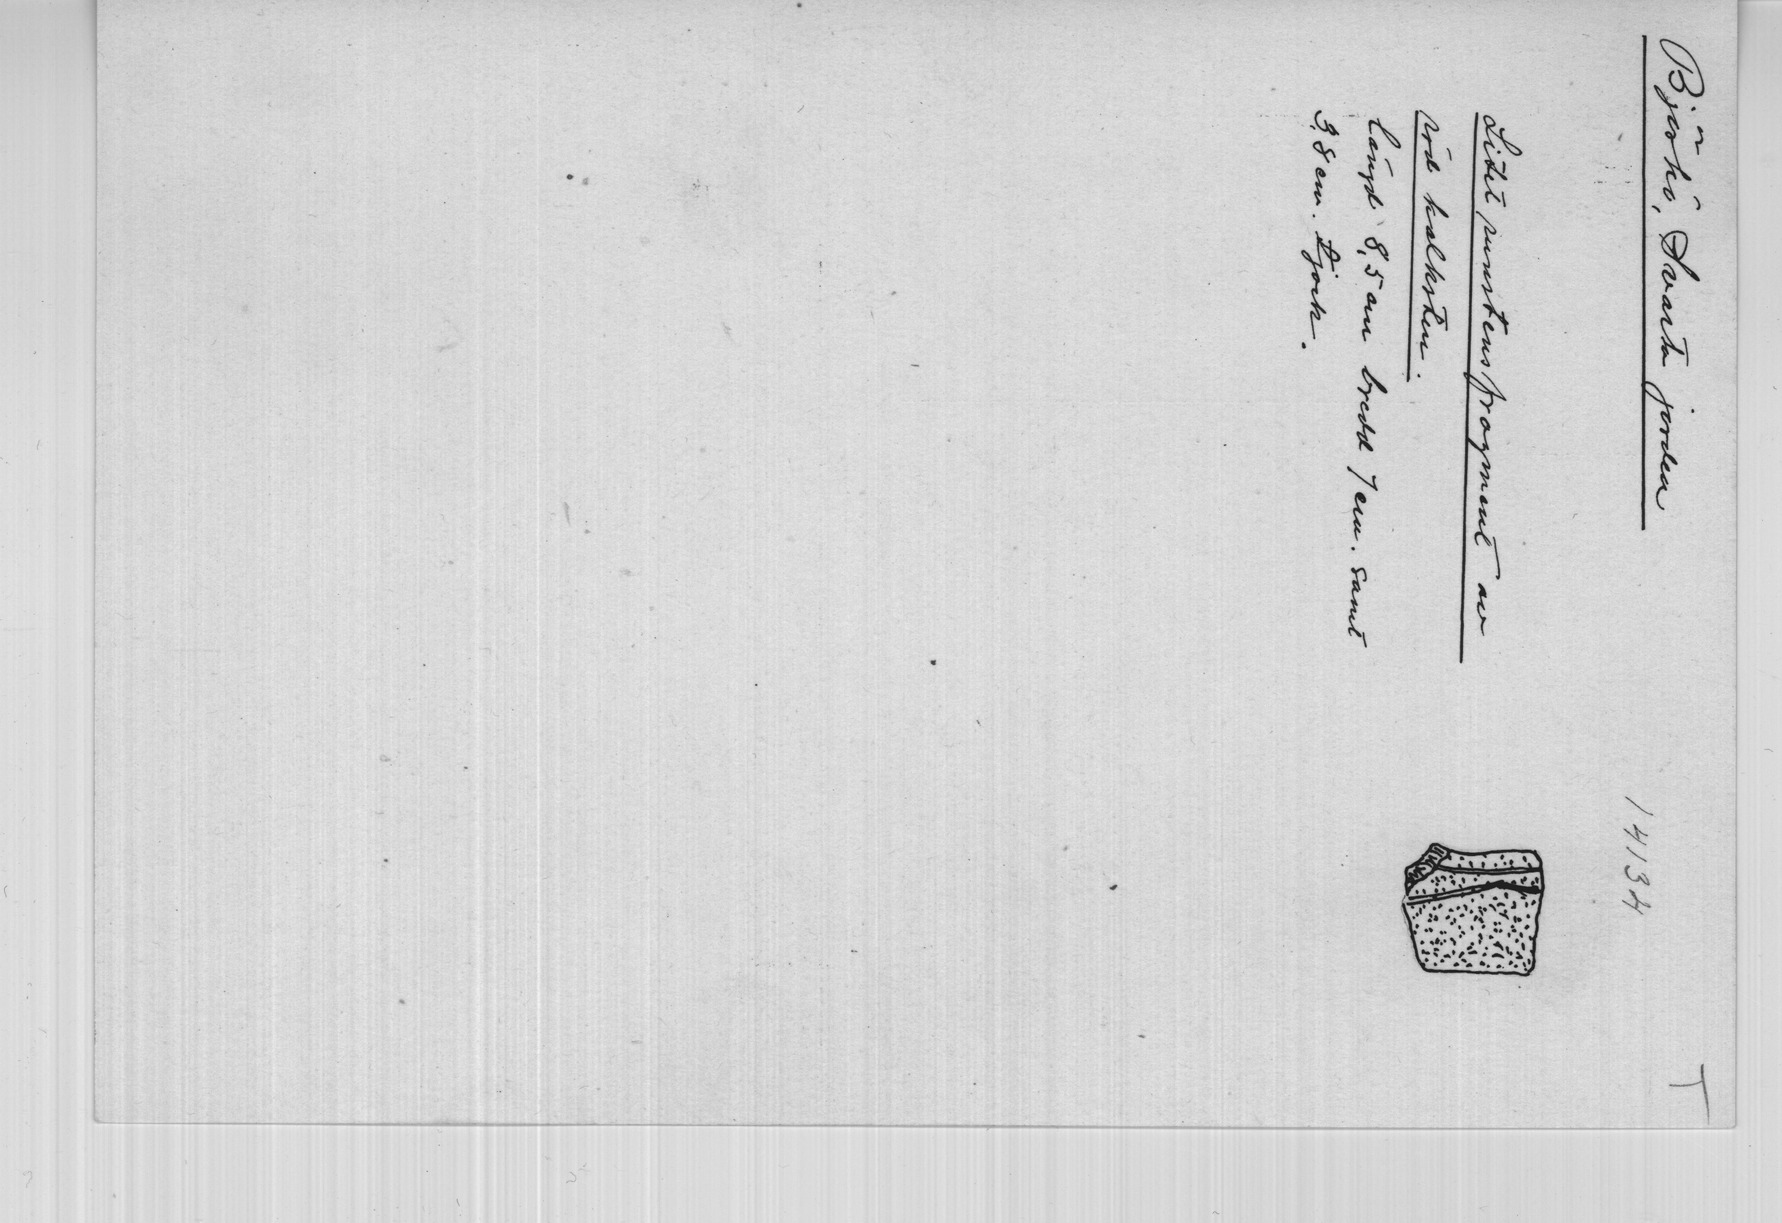 Björkö, Svarta jorden
14134
T
Litet runstensfragment av
röd kalksten.
längd 8,5 cm bredd 7 cm. samt
3,8 cm. tjock.